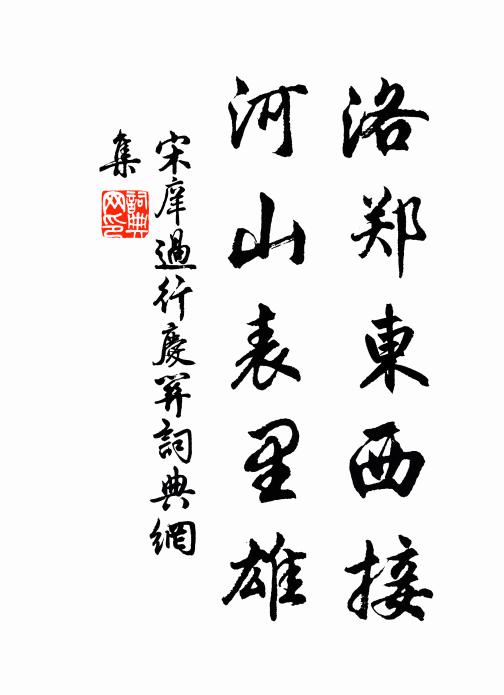 洛郑東西接
河山表里雄
宋庠過行慶關詞典網
集
詞典
网印